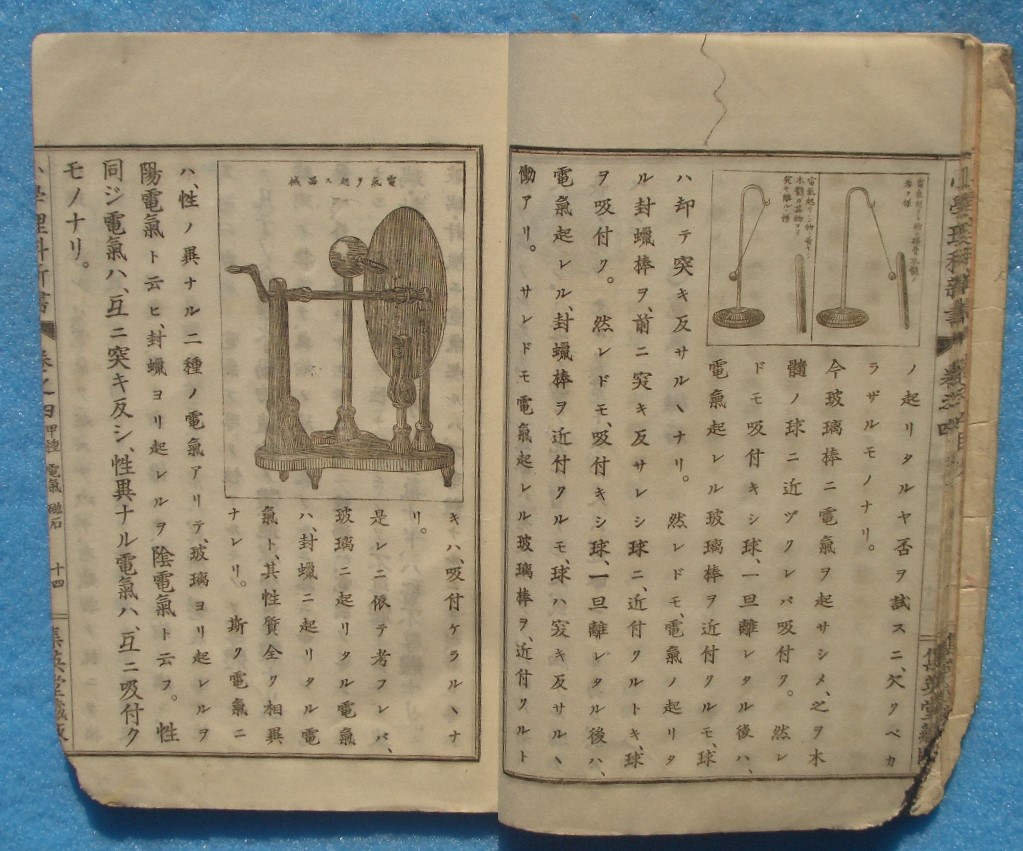 ノ起リタルヤ否ヲ試スニ、欠クベカ
ラザルモノナリ。
今玻璃棒ニ電氣ヲ起サシメ、之ヲ木
髓ノ球ニ近ヅクレバ吸付ク。然レ
ドモ吸付キシ球、一旦離レタル後ハ、
電氣起レル玻璃棒ヲ近付クルモ、球
ハ却テ突キ反サルヽナリ。然レドモ、電氣ノ起リタ
ル封蠟棒ヲ、前ニ突キ反サレシ球ニ、近付クルトキ、球
ヲ吸付ク。然レドモ、吸付キシ球、一旦離レタル後ハ、
電氣起レル、封蠟棒ヲ近付クルモ、球ハ突キ反サルヽ
働アリ。サレドモ電氣起レル玻璃棒ヲ、近付クルト
小學理科新書
卷之四
甲種 電氣 磁石
十四
集英堂藏版
電氣ヲ起ス器械
キハ、吸付ケラルヽナ
リ。
是レニ依テ考フレバ、
玻璃ニ起リタル電氣
ハ、封蠟ニ起リタル電
氣ト、其性質全ク相異
ナレリ。斯ク電氣ニ
ハ、性ノ異ナル二種ノ電氣アリテ、玻璃ヨリ起レルヲ
陽電氣ト云ヒ、封蠟ヨリ起レルヲ陰電氣ト云フ。性
同ジ電氣ハ、互ニ突キ反シ、性異ナル電氣ハ、互ニ吸付ク
モノナリ。